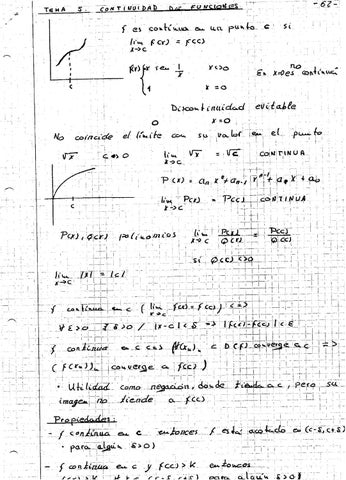 TEMA 5. CONTINUIDAD DE FUNCIONES -62-
f es continua en un punto c si
lim f(x) = f(c)
x→c
f(x) { x sen 1/x x<>0 En x=0 es no continua
1 x=0
c
Discontinuidad evitable
0 x=0
No coincide el límite con su valor en el punto
√x c>0 lim √x = √c CONTINUA
x→c
P(x) = aₙ xⁿ + aₙ₋₁ xⁿ⁻¹ + a₁x + a₀
lim P(x) = P(c) CONTINUA
x→c
c
P(x), Q(x) polinomios lim P(x)/Q(x) = P(c)/Q(c)
x→c
si Q(c)<>0
lim |x| = |c|
x→c
f continua en c ( lim f(x) = f(c) ) <=>
x→c
∀ε>0 ∃δ>0 / |x-c|<δ => |f(x)-f(c)|<ε
f continua en c <=> (∀(xₙ)ₙ c D(f) converge a c =>
(f(xₙ))ₙ converge a f(c))
· Utilidad como negación, donde tienda a c, pero su
imagen no tiende a f(c)
Propiedades:
- f continua en c entonces f está acotada en (c-δ, c+δ)
· para algún δ>0)
- f continua en c y f(c)>K entonces